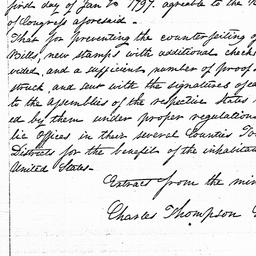 first day of Jan'y 1797. agreable to the
of Congress aforesaid. -
That for preventing the counterfeiting of
Bills, new stamps with additional checks
vided, and a sufficient number of proof
struck, and sent with the signatures of
to the Assemblies of the respective States
ed by them under proper regulation
lic Offices in their several Counties To
Districts for the benefit of the inhabitan
United States. -
Extract from the min
Charles Thompson